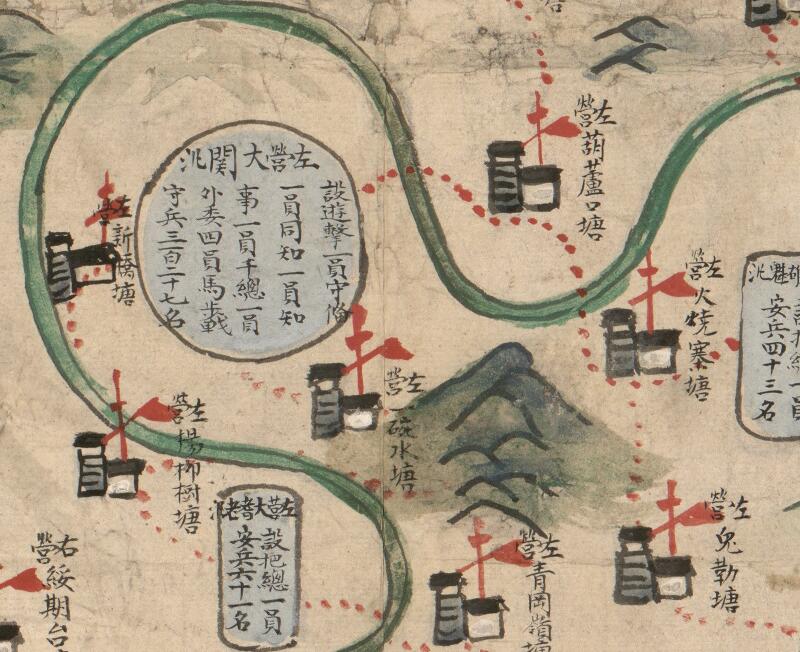 左營大關汛
設遊擊一員守偹
一員同知一員知
事一員千總一員
外委四員馬步戰
守兵三百二十七名
左營葫蘆口塘
左營火燒寨塘
左營新橋塘
左營一碗水塘
左營楊柳樹塘
設把總一員
安兵六十一名
安兵四十三名
左營兒勒塘
左營青岡嶺塘
右營綏期台